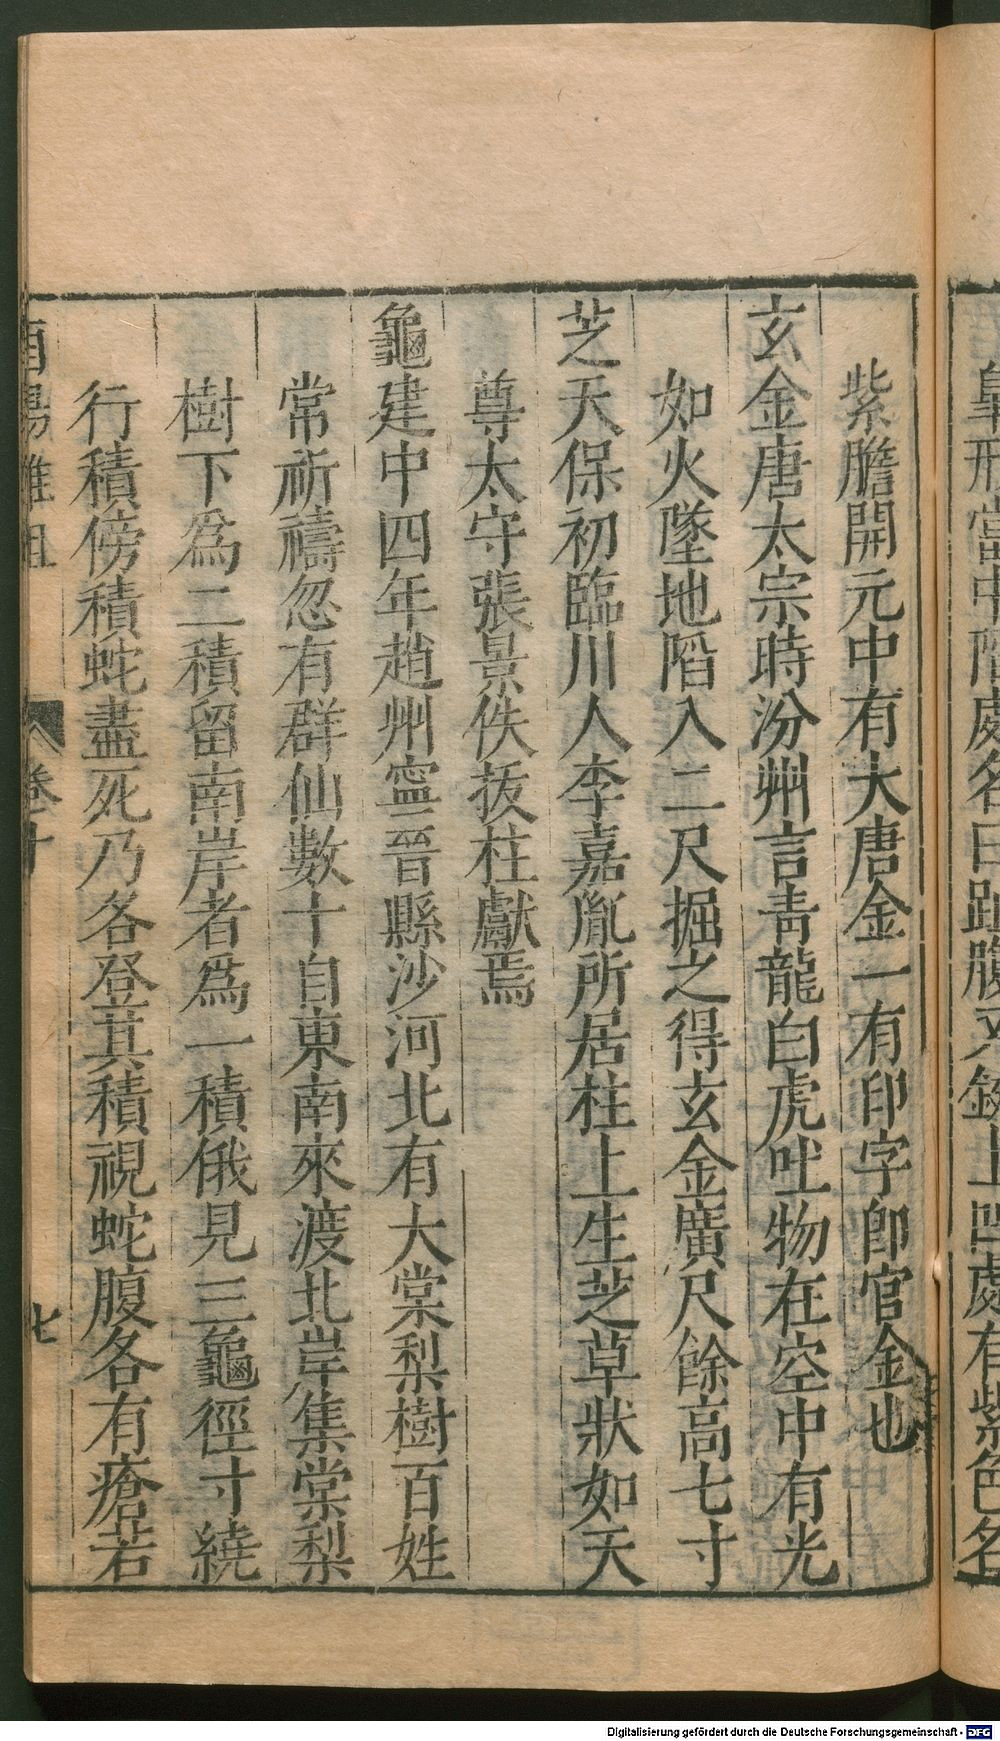 皐形當中陷處名曰趾腹文銘上凹處有紫色名
紫膽開元中有大唐金一有印字卽官金也
玄金唐太宗時汾州言青龍白虎吐物在空中有光
如火墜地陷入二尺掘之得玄金廣尺餘高七寸
芝天保初臨川人李嘉胤所居柱上生芝草狀如天
尊太守張景佚拔柱獻焉
龜建中四年趙州寧晉縣沙河北有大棠梨樹百姓
常祈禱忽有群仙數十自東南來渡北岸集棠梨
樹下爲二積留南岸者爲一積俄見三龜徑寸繞
行積傍積蛇盡死乃各登其積視蛇腹各有瘡若
酉陽雜俎 卷十 七
Digitalisierung gefördert durch die Deutsche Forschungsgemeinschaft - DFG